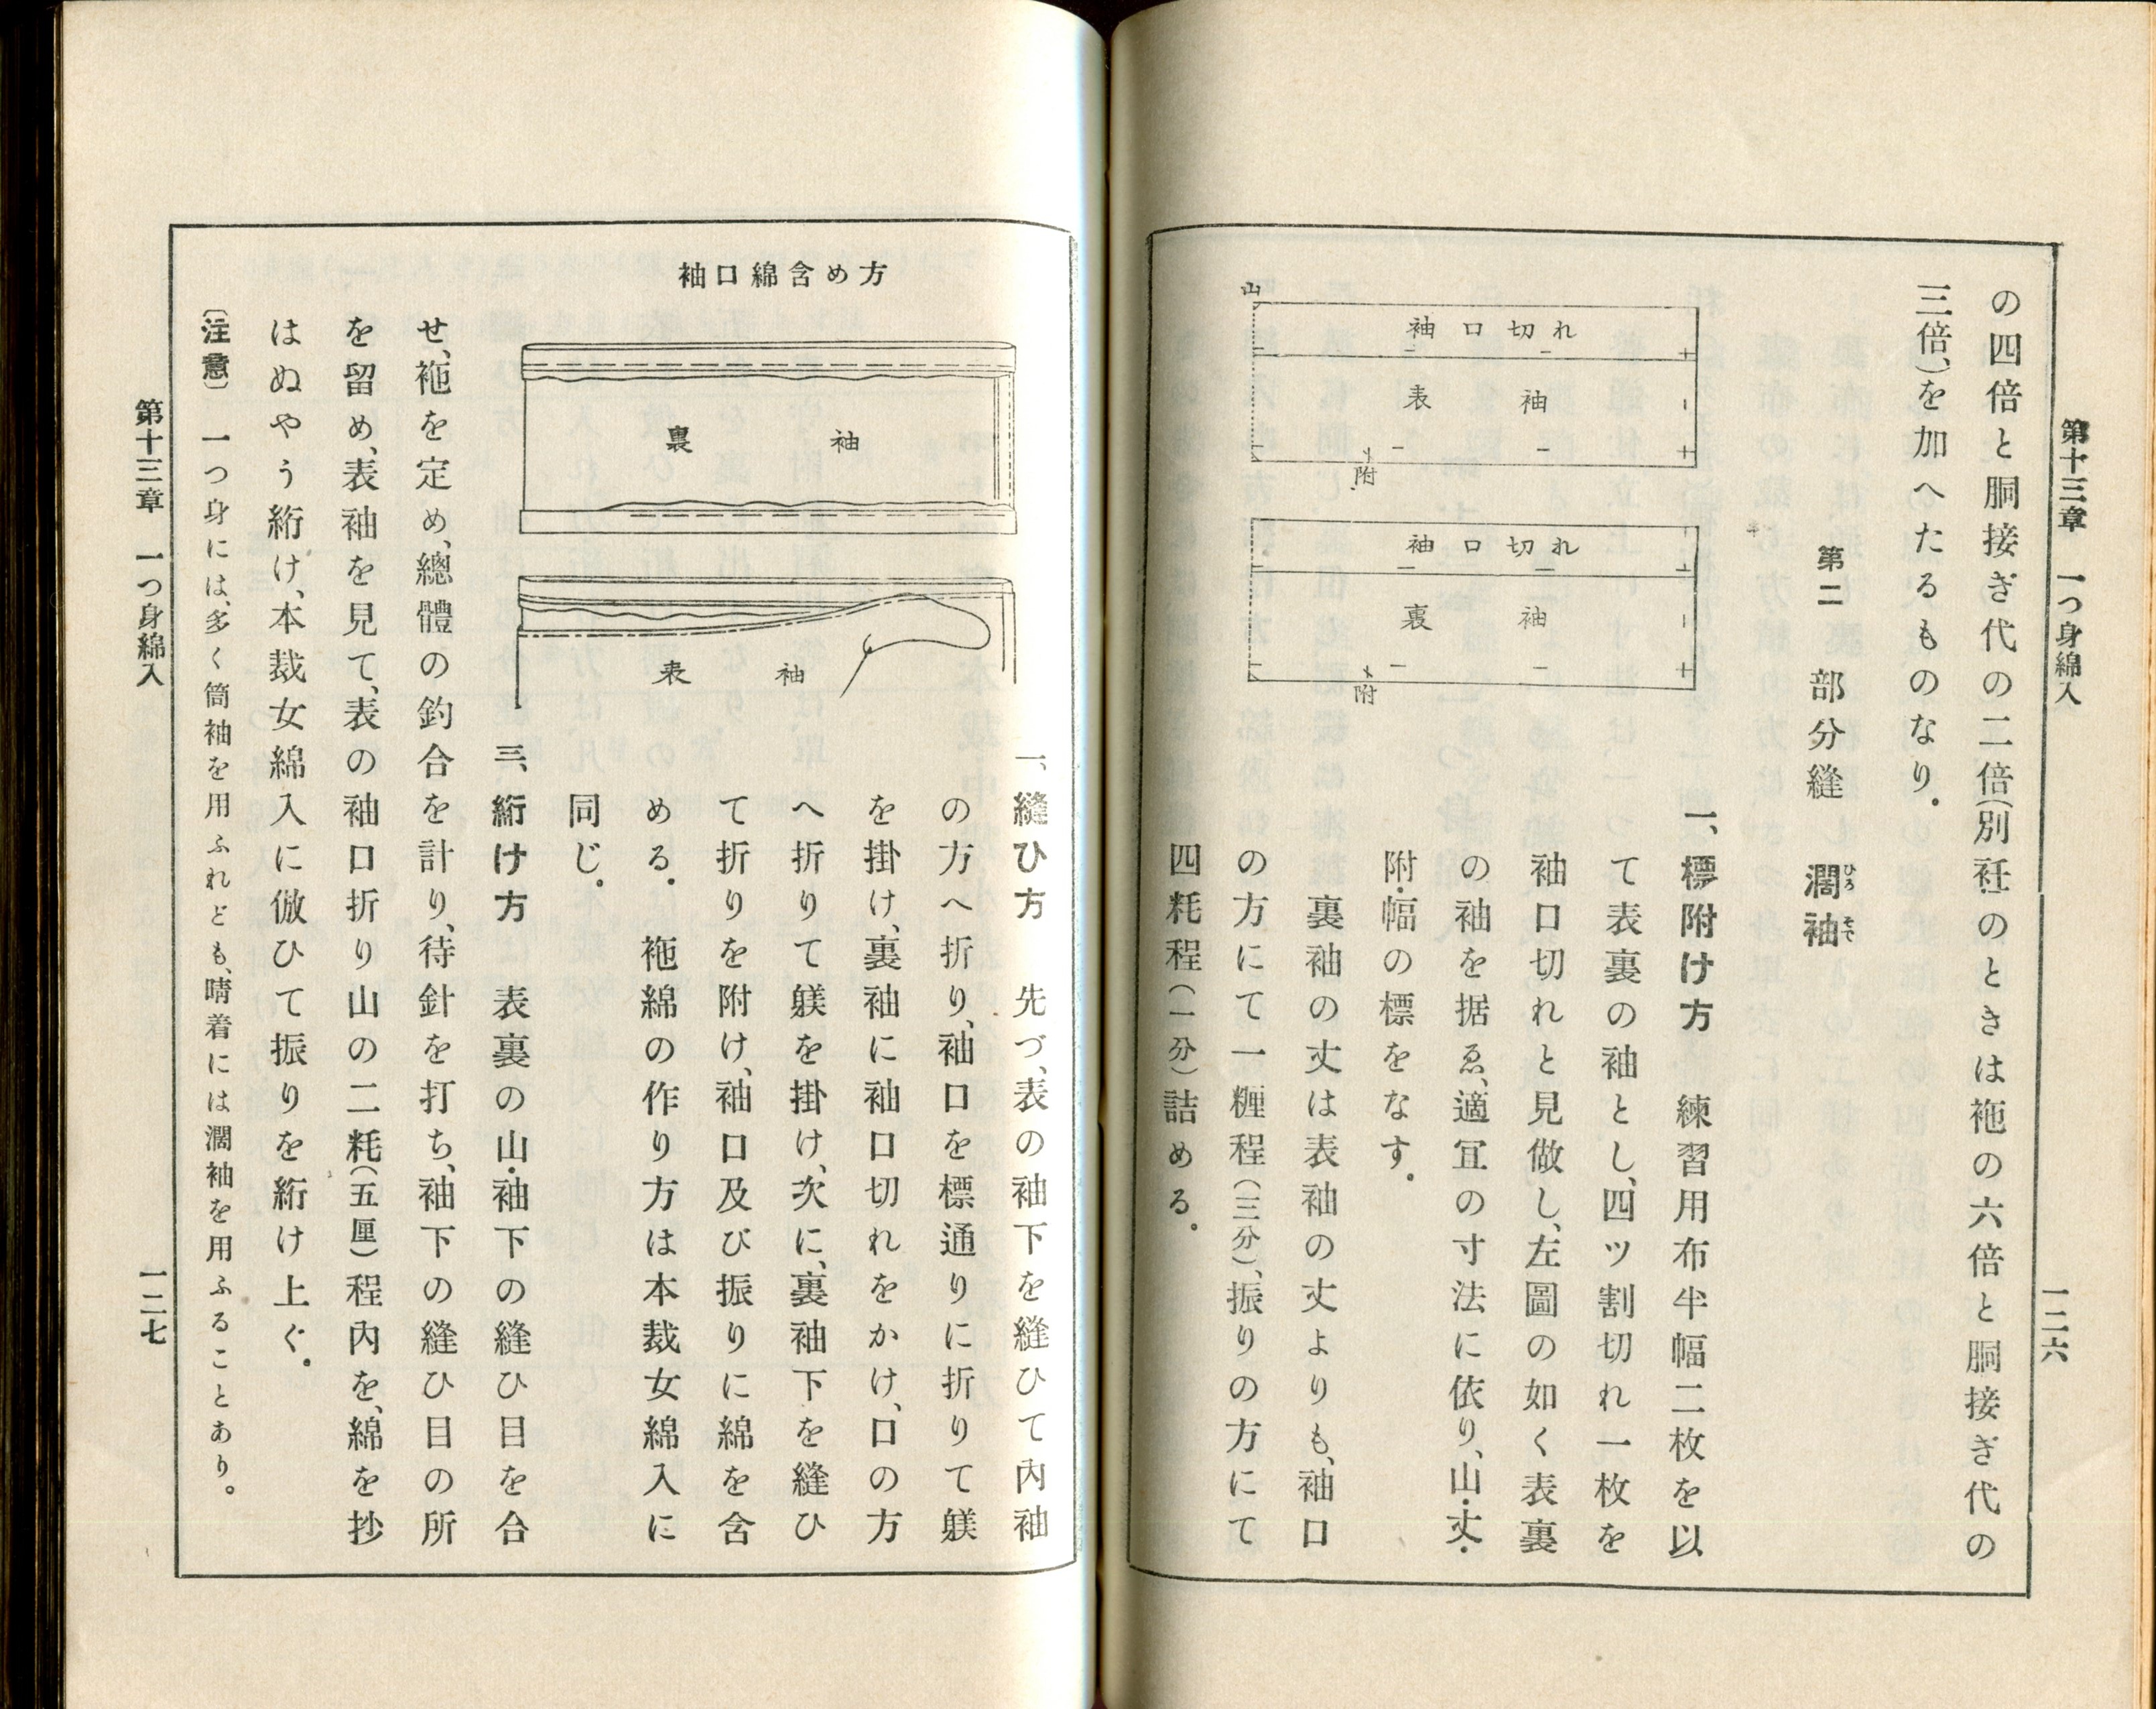 第十三章　一つ身綿入
一二六
の四倍と胴接ぎ代の二倍(別衽のときは袘の六倍と胴接ぎ代の
三倍)を加へたるものなり。
第二　部分縫　濶袖
ひろそで
一、標附け方　練習用布半幅二枚を以
て表裏の袖とし、四ツ割切れ一枚を
袖口切れと見做し、左圖の如く表裏
の袖を据ゑ、適宜の寸法に依り、山・丈・
附・幅の標をなす。
裏袖の丈は表袖の丈よりも、袖口
の方にて一糎程(三分)、振りの方にて
四粍程(一分)詰める。
山
袖口切れ
表　袖
附
袖口切れ
裏　袖
附
袖口綿含め方
裏　袖
表　袖
一、縫ひ方　先づ、表の袖下を縫ひて内袖
の方へ折り、袖口を標通りに折りて躾
を掛け、裏袖に袖口切れをかけ、口の方
へ折りて躾を掛け、次に、裏袖下を縫ひ
て折りを附け、袖口及び振りに綿を含
める。　袘綿の作り方は本裁女綿入に
同じ。
三、絎け方　表裏の山・袖下の縫ひ目を合
せ、袘を定め、總體の釣合を計り、待針を打ち、袖下の縫ひ目の所
を留め、表袖を見て、表の袖口折り山の二粍(五厘)程内を、綿を抄
はぬやう絎け、本裁女綿入に倣ひて振りを絎け上ぐ。
〔注意〕　一つ身には、多く筒袖を用ふれども、晴着には濶袖を用ふることあり。
第十三章　一つ身綿入
一二七